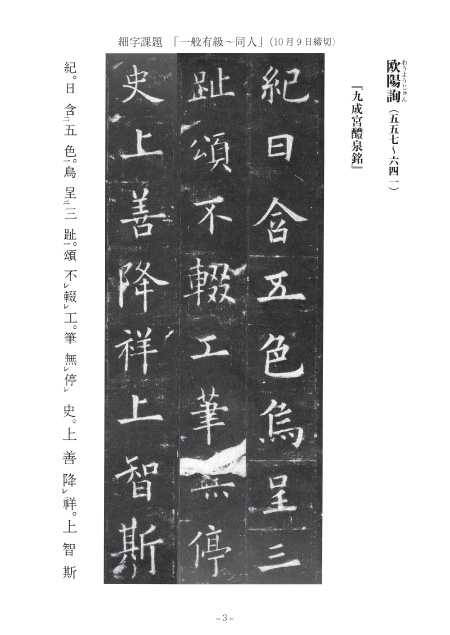 細字課題 「一般有級～同人」（10月9日締切）
欧陽詢（五五七～六四一）
おうようじゅん
『九成宮醴泉銘』
紀日含五色烏呈三
趾頌不輟工筆無停
史上善降祥上智斯
紀。日 含二 五 色一。烏 呈二 三 趾一。頌 不レ 輟レ 工。筆 無レ 停レ 史。上 善 降レ 祥。上 智 斯
- 3 -